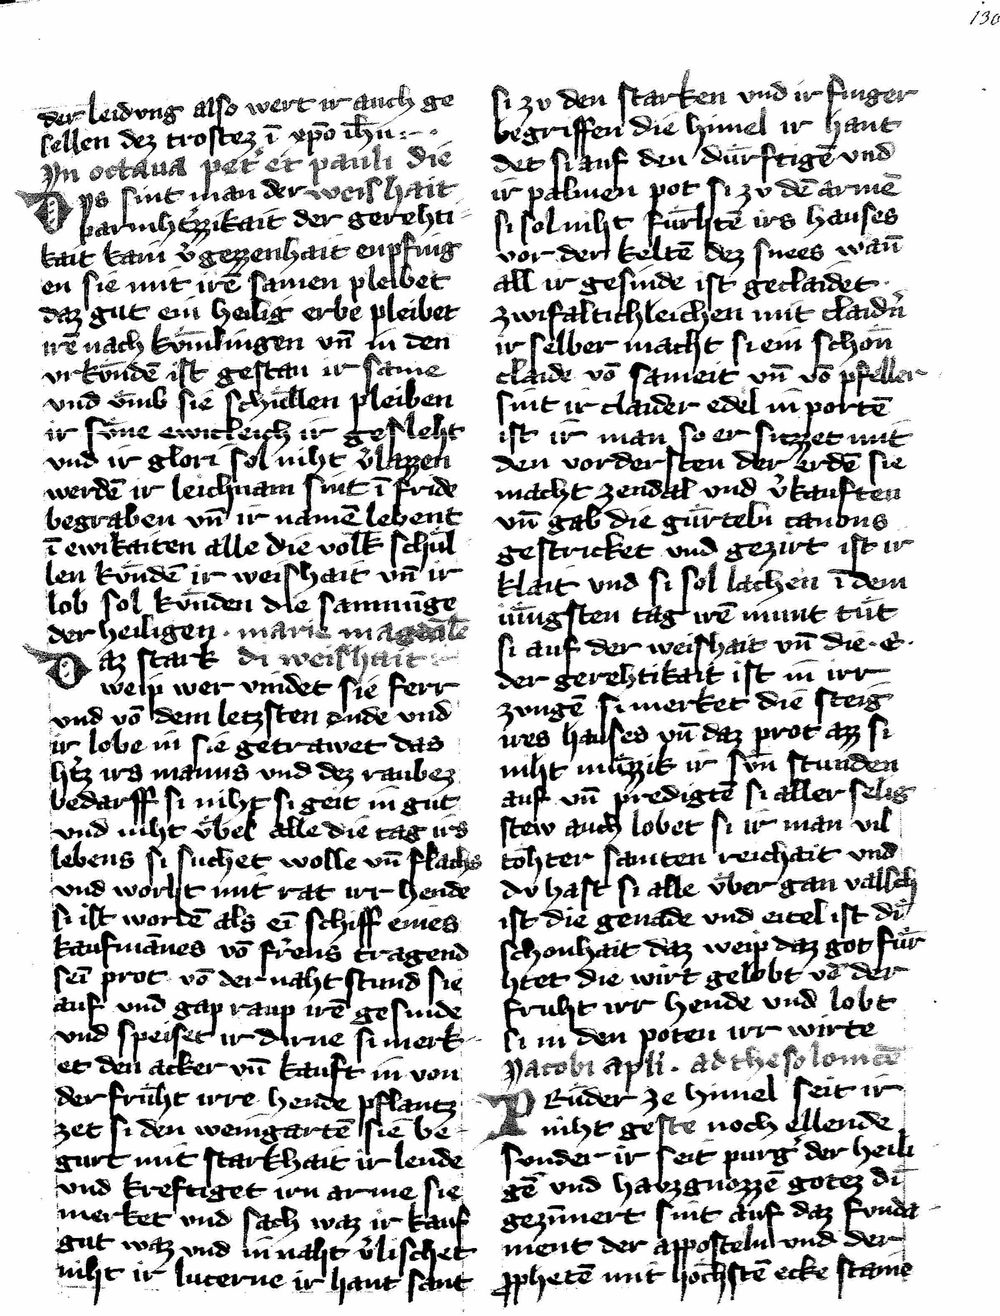 130
der leidvng also wert ir auch ge
sellen dez trostez ī xp̄o ih̄u :·
Jn octaua pet' et pauli die
Dys sint man der weishait
parmh'tzzikait der gerehti
kait kain v'gezzenhait enpfing
en sie mit irē samen pleibet
daz gut ein heilig erbe pleibet
irē nach kv̈mlingen vn̄ in den
vrkvndē ist gestan ir same
vnd v̈mb sie schüllen pleiben
ir sv̈ne ewicleich ir gesleht
vnd ir glori sol niht v'lazzen
werdē ir leichnam sint ī fride
begraben vn̄ ir namē lebent
ī ewikaiten alle die volk schül
len kvndē ir weishait vn̄ ir
lob sol kvnden die samnūge
der heiligen · marie magdalē
Daz stark di weishait :·
weip wer vindet sie ferr
vnd vō dem letzsten ende vnd
ir lobe in sie getrawet das
h'tz irs manns vnd dez raubez
bedarff si niht si geit in gut
vnd niht v̈bel alle die tag irs
lebens si suchet wolle vn̄ flachs
vnd worht mit rat irr hende
si ist wordē als eī schiff eines
kaufmānes vō f'rens tragend
seī prot vō der naht stund sie
auf vnd gap raup irē gesinde
vnd speiset ir dirne si merk
et den acker vn̄ kauft in von
der früht irre hende pflantz
zet si den weingartē sie be
gurt mit starkhait ir lende
vnd kreftiget irn arme sie
merket vnd sach waz ir kauf
gut waz vnd in naht v'lischet
niht ir lucerne ir hant sant
si zv den starken vnd ir finger
begriffen die himel ir hant
det si auf den dürftigē vnd
ir palmen pot si zv dē armē
si sol niht fürhtē irs hauses
vor der keltē dez snees wan̄
all ir gesinde ist geclaidet
zwifaltichleichen mit claid'n
ir selber macht si ein schön
claide vō sameit vn̄ vō pfeller
sint ir claider edel in portē
ist ir man so er sitzzet mit
den vordersten der erdē sie
macht zendal vnd v'kauften
vn̄ gab die gürteln canons
gestricket vnd gezirt ist ir
klait vnd si sol lachen ī dem
iüngsten tag irē munt tüt
si auf der weishait vn̄ die · e ·
der gerehtikait ist in irr
zvngē si merket die steig
ires hauses vn̄ daz prot azz si
niht müzzik ir sv̈n stunden
auf vn̄ predigtē si aller selig
stew auch lobet si ir man vil
tohter samten reichait vnd
dv hast si alle v̈ber gan valsch
ist die genade vnd eitel ist di
schonhait daz weip daz got für
htet die wirt gelobt vō der
fruht irr hende vnd lobt
si in den poten irr wirte
Jacobi apli · ad thesolonicē
PRüder ze himel seit ir
niht geste noch ellende
sunder ir seit purg' der heili
gē vnd havzgnozzē gotez di
gezīmert sint auf daz funda
ment der apposteln vnd der
prophetē mit höchstē ecke staine